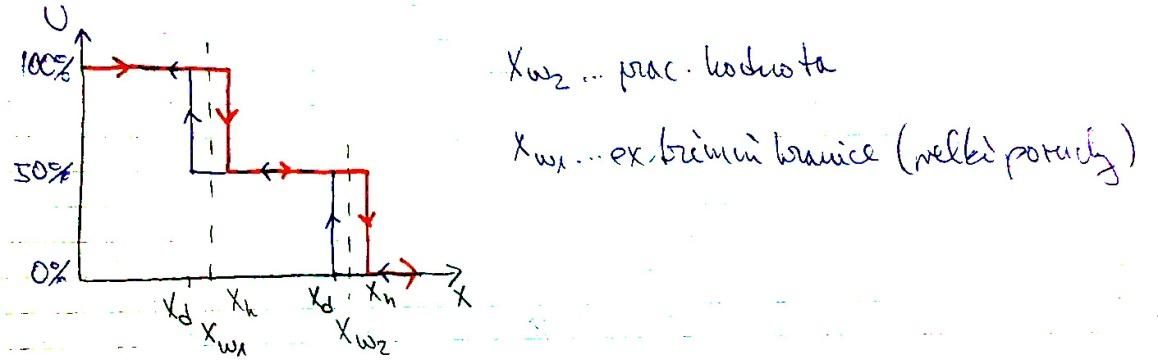 U
100%
50%
0%
x_d x_h x_d x_h x
x_w1 x_w2
x_w2 ... prac. hodnota
x_w1 ... extrémní hranice (velké poruchy)